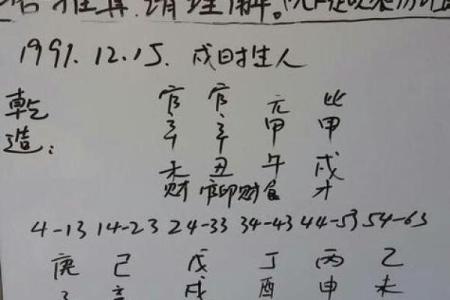 1991.12.15. 戌时生人
官 官 元 比
乾 辛 辛 甲 甲
造: 未 丑 午 戌
财 官印财 食 才
4-13 14-23 24-33 34-43 44-53 54-63
庚 己 戊 丁 丙 乙
戌 酉 申 未